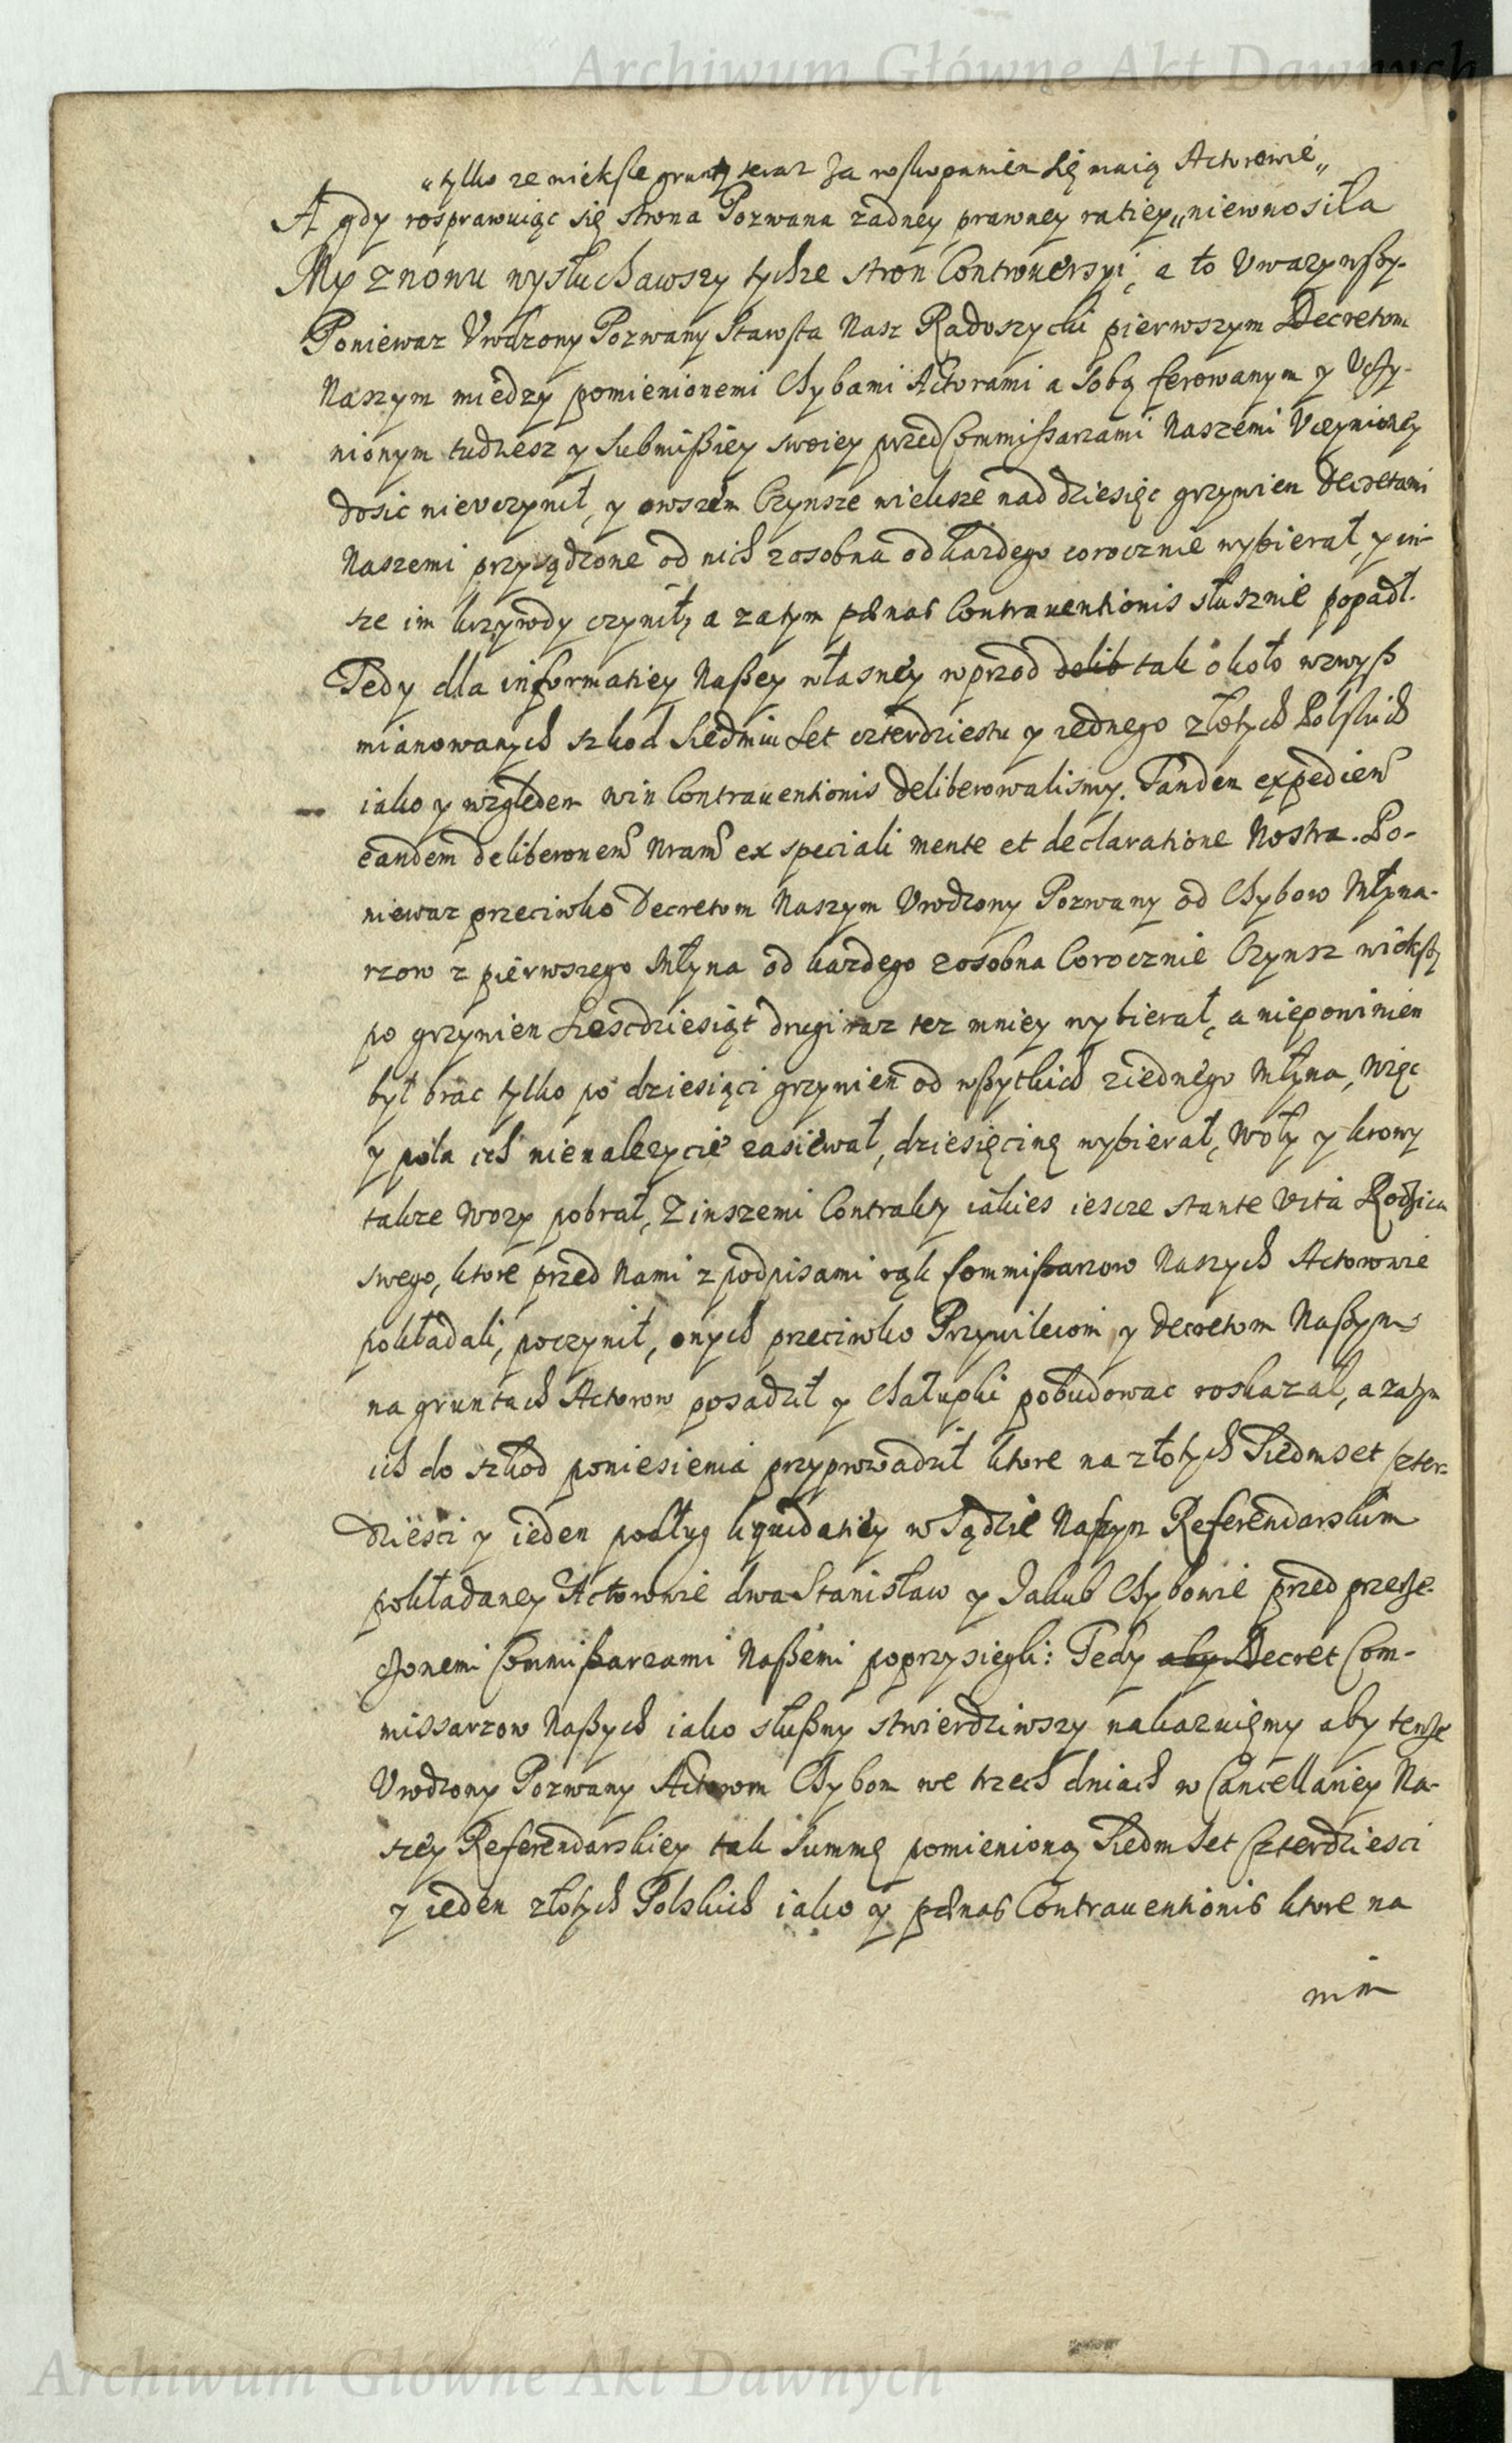 Archiwum Główne Akt Dawnych
„tylko ze wieksze grunty teraz za roskopaniem się maią Actorowie„
A gdy rosprawuiąc się strona Pozwana zadney prawney ratiey„ niewnosiła
My znowu wysłuchawszy tychze stron Controuersyi, a to Uwazywszy.
Poniewaz Urodzony Pozwany Starosta Nasz Radoszycki pierwszym Decretom
Naszym miedzy pomienionemi Chybami Actorami a sobą ferowanym y Uczy-
nionym tudziesz y Submissiey swoiey przed Commissarzami Naszemi Uczynioney
dosic nieuczynił, y owszem Czynsze wieksze nad dziesięc grzywien Decretami
Naszemi przysądzone od nich zosobna od kazdego corocznie wybierał, y in-
sze im krzywdy czynił, a zatym pænas Contrauentionis słusznie popadł.
Tedy dla informatiey Naszey własney wprzod delib tak około wzwysz
mianowanych szkod Siedmiu Set czterdziestu y iednego złotych Polskich
iako y względem win Contrauentionis deliberowalismy. Tandem expedien
eandem deliberonem Nram ex speciali mente et declaratione Nostra. Po-
niewaz przeciwko Decretom Naszym Urodzony Pozwany od Chybow Młyna-
rzow z pierwszego Młyna od kazdego zosobna Corocznie Czynsz wiekszy
po grzywien Szescdziesiąt drugi raz tez mniey wybierał, a niepowinien
był brac tylko po dziesiąci grzywien od wszytkich ziednego Młyna, Więc
y pola ich nienalezycie zasiewał, dziesięcinę wybierał, Woły y krowy
takze Wozy pobrał, Z inszemi Contrakty iakies iescze stante vita Rodzica
swego, ktore przed Nami z podpisami rąk Commissarzow Naszych Actorowie
pokładali, poczynił, onych przeciwko Przywileiom y Decretom Naszym
na gruntach Actorow posadził y Chałupki pobudowac roskazał, a zatym
ich do szkod poniesienia przyprowadził ktore na złotych Siedmset czter-
dziesci y ieden podług liquidatiey w Sądzie Naszym Referendarskim
pokładaney Actorowie dwa Stanisław y Jakub Chybowie przed przerze-
czonemi Commissarzami Naszemi poprzysiegli: Tedy aby Decret Com-
missarzow Naszych iako słuszny stwierdziwszy nakazuięmy aby tenze
Urodzony Pozwany Actorom Chybom we trzech dniach w Cancellariey Na-
szey Referendarskiey tak Summę pomienioną Siedm Set Czterdziesci
y ieden złotych Polskich iako y pænas Contrauentionis ktore na
nim
Archiwum Główne Akt Dawnych